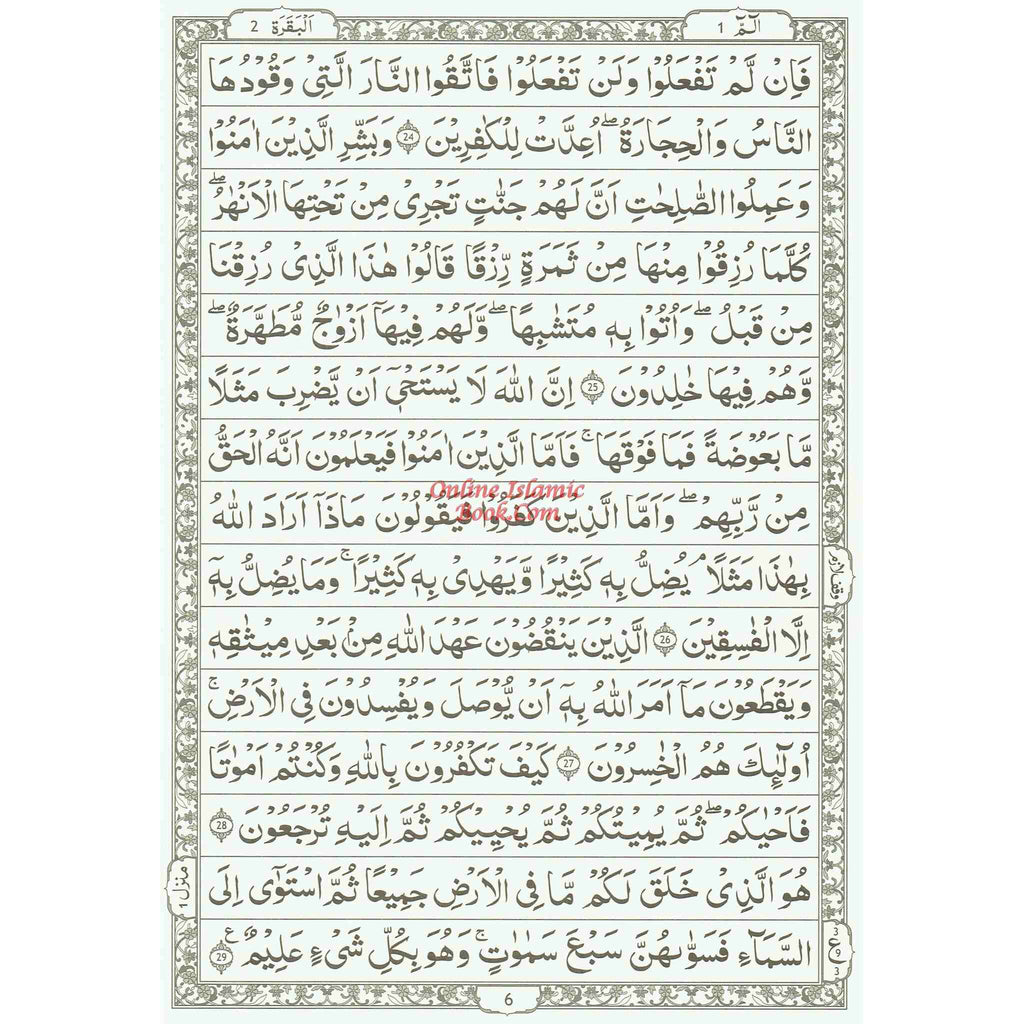 الٓمّٓ 1
اَلْبَقَرَة 2
فَاِنْ لَّمْ تَفْعَلُوْا وَلَنْ تَفْعَلُوْا فَاتَّقُوا النَّارَ الَّتِیْ وَقُوْدُهَا
النَّاسُ وَالْحِجَارَةُ ۖۚ اُعِدَّتْ لِلْكٰفِرِیْنَ 24 وَبَشِّرِ الَّذِیْنَ اٰمَنُوْا
وَعَمِلُوا الصّٰلِحٰتِ اَنَّ لَهُمْ جَنّٰتٍ تَجْرِیْ مِنْ تَحْتِهَا الْاَنْهٰرُ ؕ
كُلَّمَا رُزِقُوْا مِنْهَا مِنْ ثَمَرَةٍ رِّزْقًا قَالُوْا هٰذَا الَّذِیْ رُزِقْنَا
مِنْ قَبْلُ ۙ وَاُتُوْا بِهٖ مُتَشَابِهًا ؕ وَلَهُمْ فِیْهَاۤ اَزْوَاجٌ مُّطَهَّرَةٌ ۙ
وَّهُمْ فِیْهَا خٰلِدُوْنَ 25 اِنَّ اللّٰهَ لَا یَسْتَحْیٖۤ اَنْ یَّضْرِبَ مَثَلًا
مَّا بَعُوْضَةً فَمَا فَوْقَهَا ؕ فَاَمَّا الَّذِیْنَ اٰمَنُوْا فَیَعْلَمُوْنَ اَنَّهُ الْحَقُّ
مِنْ رَّبِّهِمْ ۚ وَاَمَّا الَّذِیْنَ كَفَرُوْا فَیَقُوْلُوْنَ مَاذَاۤ اَرَادَ اللّٰهُ
بِهٰذَا مَثَلًا ۘ یُضِلُّ بِهٖ كَثِیْرًا وَّیَهْدِیْ بِهٖ كَثِیْرًا ؕ وَمَا یُضِلُّ بِهٖۤ
اِلَّا الْفٰسِقِیْنَ 26 الَّذِیْنَ یَنْقُضُوْنَ عَهْدَ اللّٰهِ مِنْۢ بَعْدِ مِیْثٰقِهٖ
وَیَقْطَعُوْنَ مَاۤ اَمَرَ اللّٰهُ بِهٖۤ اَنْ یُّوْصَلَ وَیُفْسِدُوْنَ فِی الْاَرْضِ ؕ
اُولٰٓئِكَ هُمُ الْخٰسِرُوْنَ 27 كَیْفَ تَكْفُرُوْنَ بِاللّٰهِ وَكُنْتُمْ اَمْوَاتًا
فَاَحْیَاكُمْ ۚ ثُمَّ یُمِیْتُكُمْ ثُمَّ یُحْیِیْكُمْ ثُمَّ اِلَیْهِ تُرْجَعُوْنَ 28
هُوَ الَّذِیْ خَلَقَ لَكُمْ مَّا فِی الْاَرْضِ جَمِیْعًا ثُمَّ اسْتَوٰۤی اِلَی
السَّمَآءِ فَسَوّٰىهُنَّ سَبْعَ سَمٰوٰتٍ ؕ وَهُوَ بِكُلِّ شَیْءٍ عَلِیْمٌ ع 29
Online Islamic
Book.Com
وقف لازم
منزل 1
3
ع
9
3
6